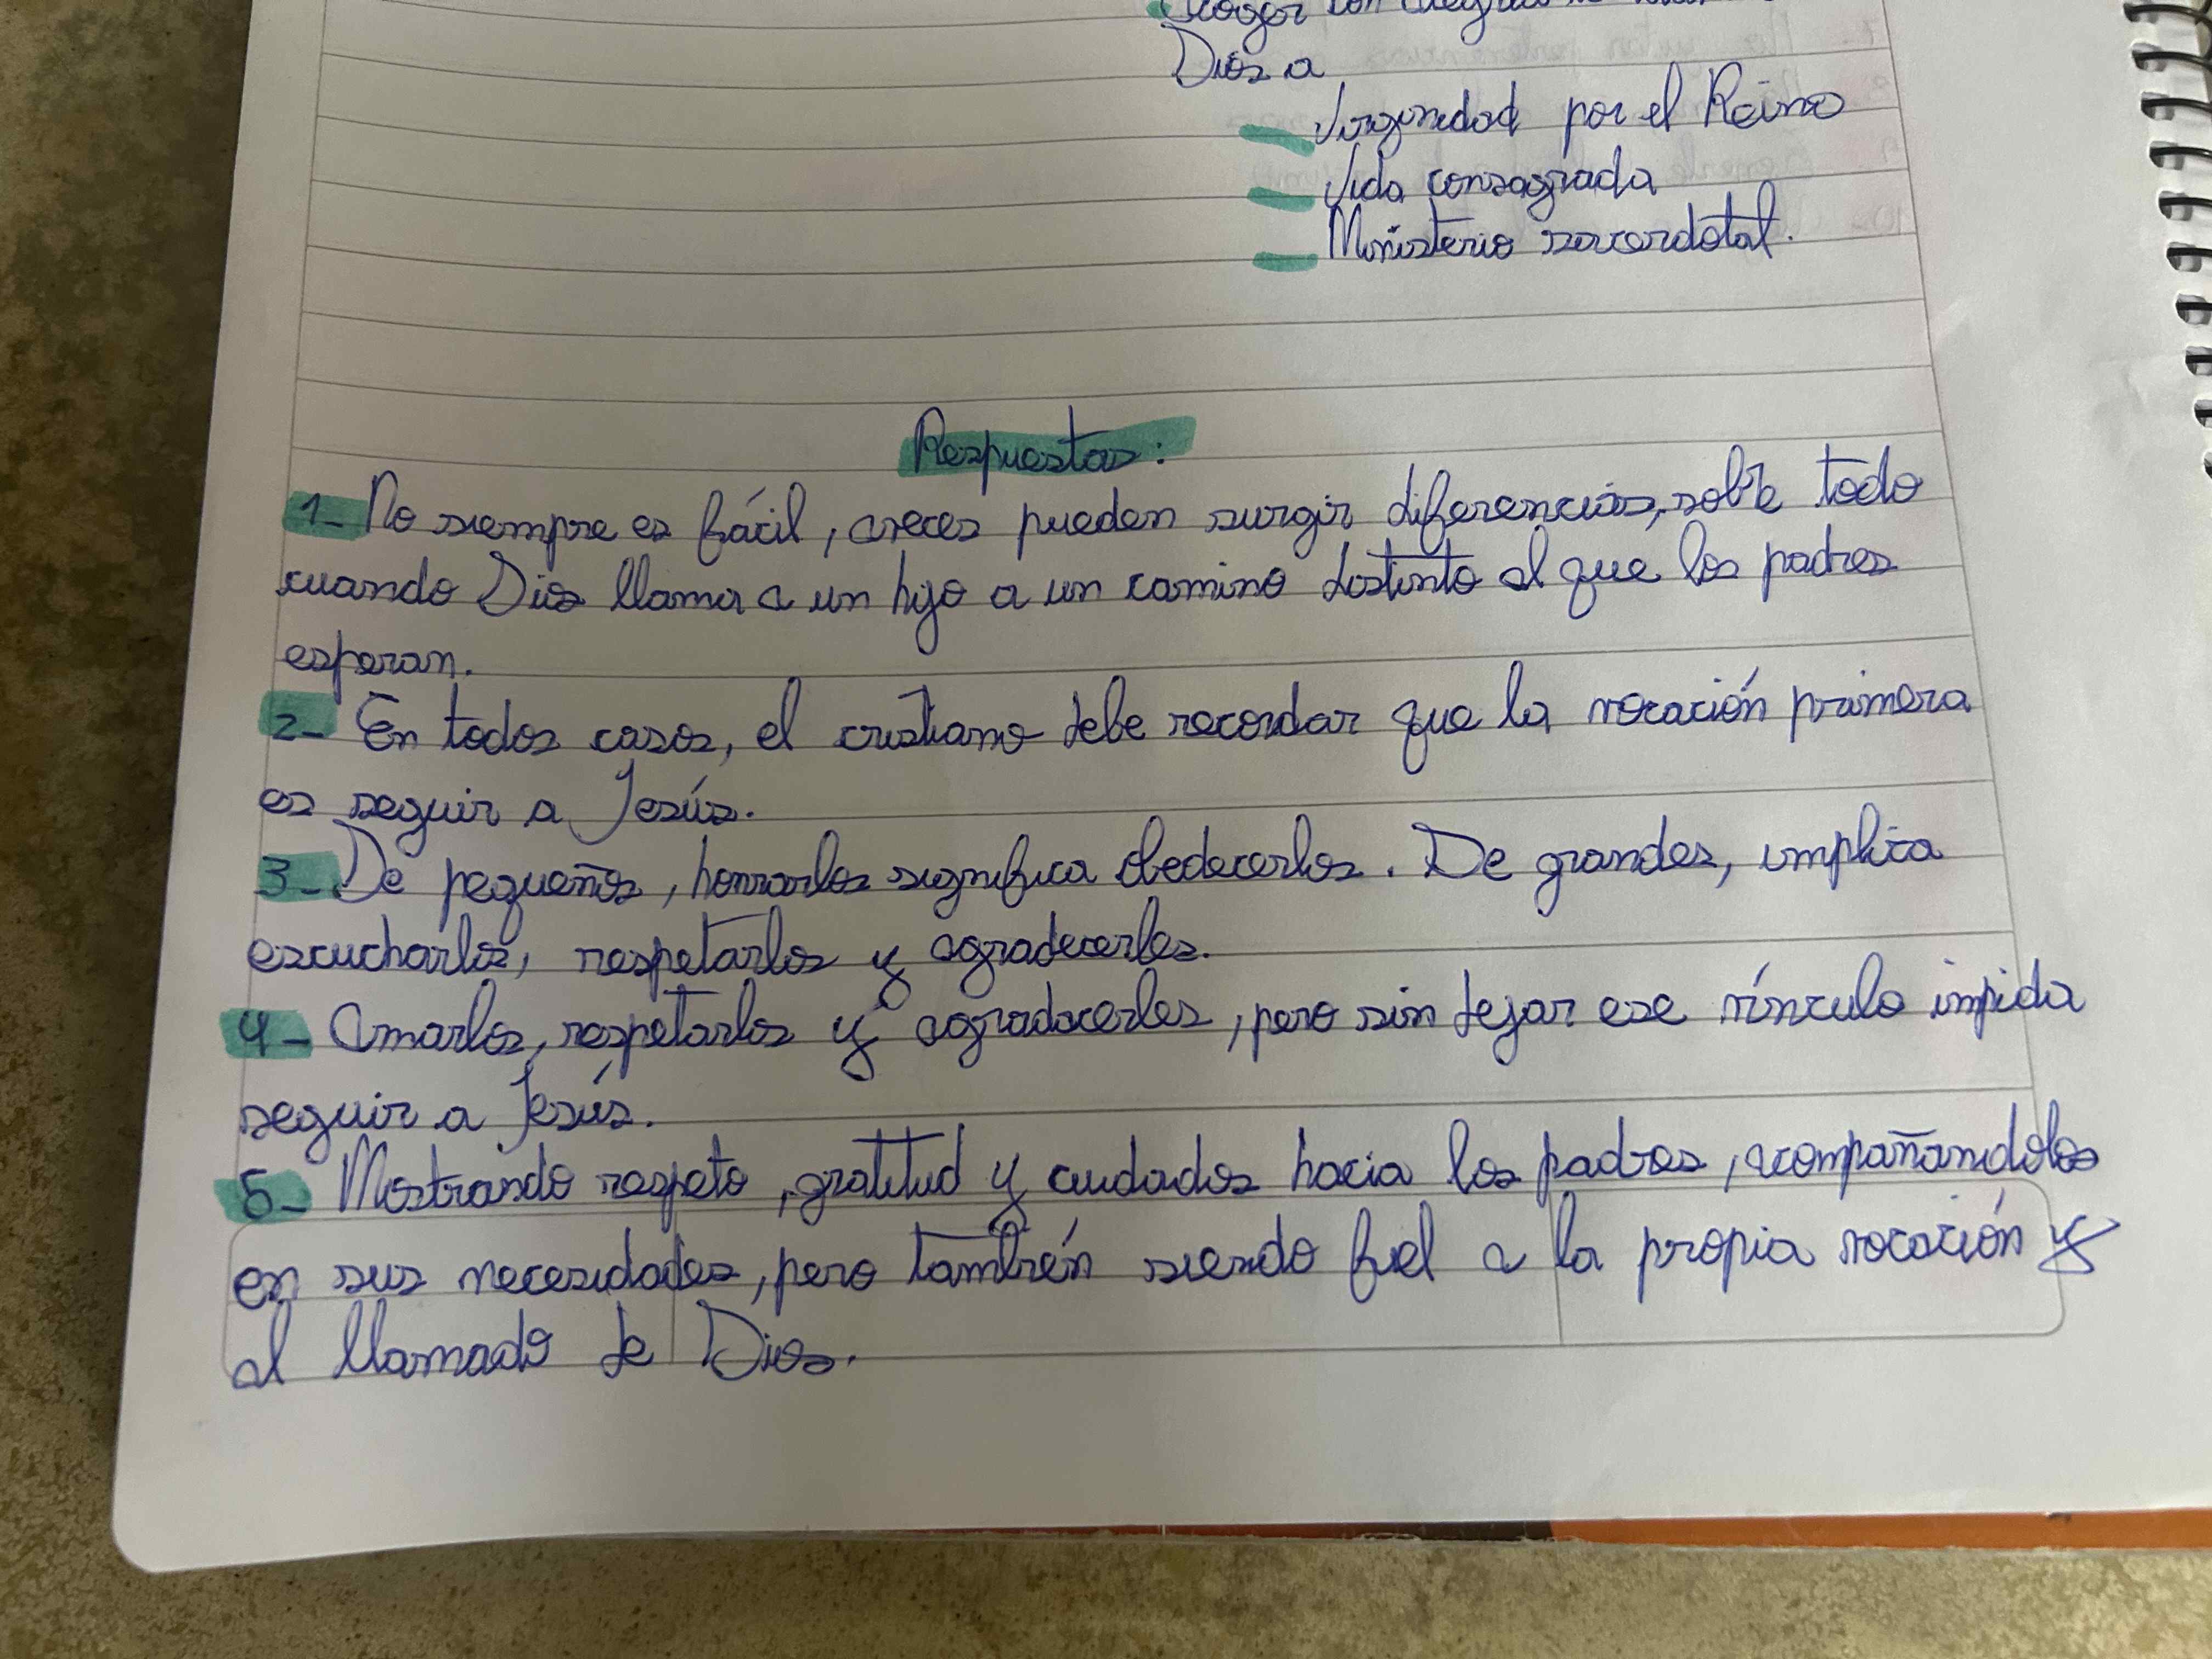 Acoger con alegría
Dios a
Virginidad por el Reino
Vida consagrada
Ministerio sacerdotal.
Respuestas:
1- No siempre es fácil, aveces pueden surgir diferencias, sobre todo
cuando Dios llama a un hijo a un camino distinto al que los padres
esperan.
2- En todos casos, el cristiano debe recordar que la vocación primera
es seguir a Jesús.
3- De pequeños, honrarlos significa obedecerlos. De grandes, implica
escucharlos, respetarlos y agradecerles.
4- Amarlos, respetarlos y agradecerles, pero sin dejar ese vínculo impida
seguir a Jesús.
5- Mostrando respeto, gratitud y cuidados hacia los padres, acompañandolos
en sus necesidades, pero también siendo fiel a la propia vocación y
al llamado de Dios.